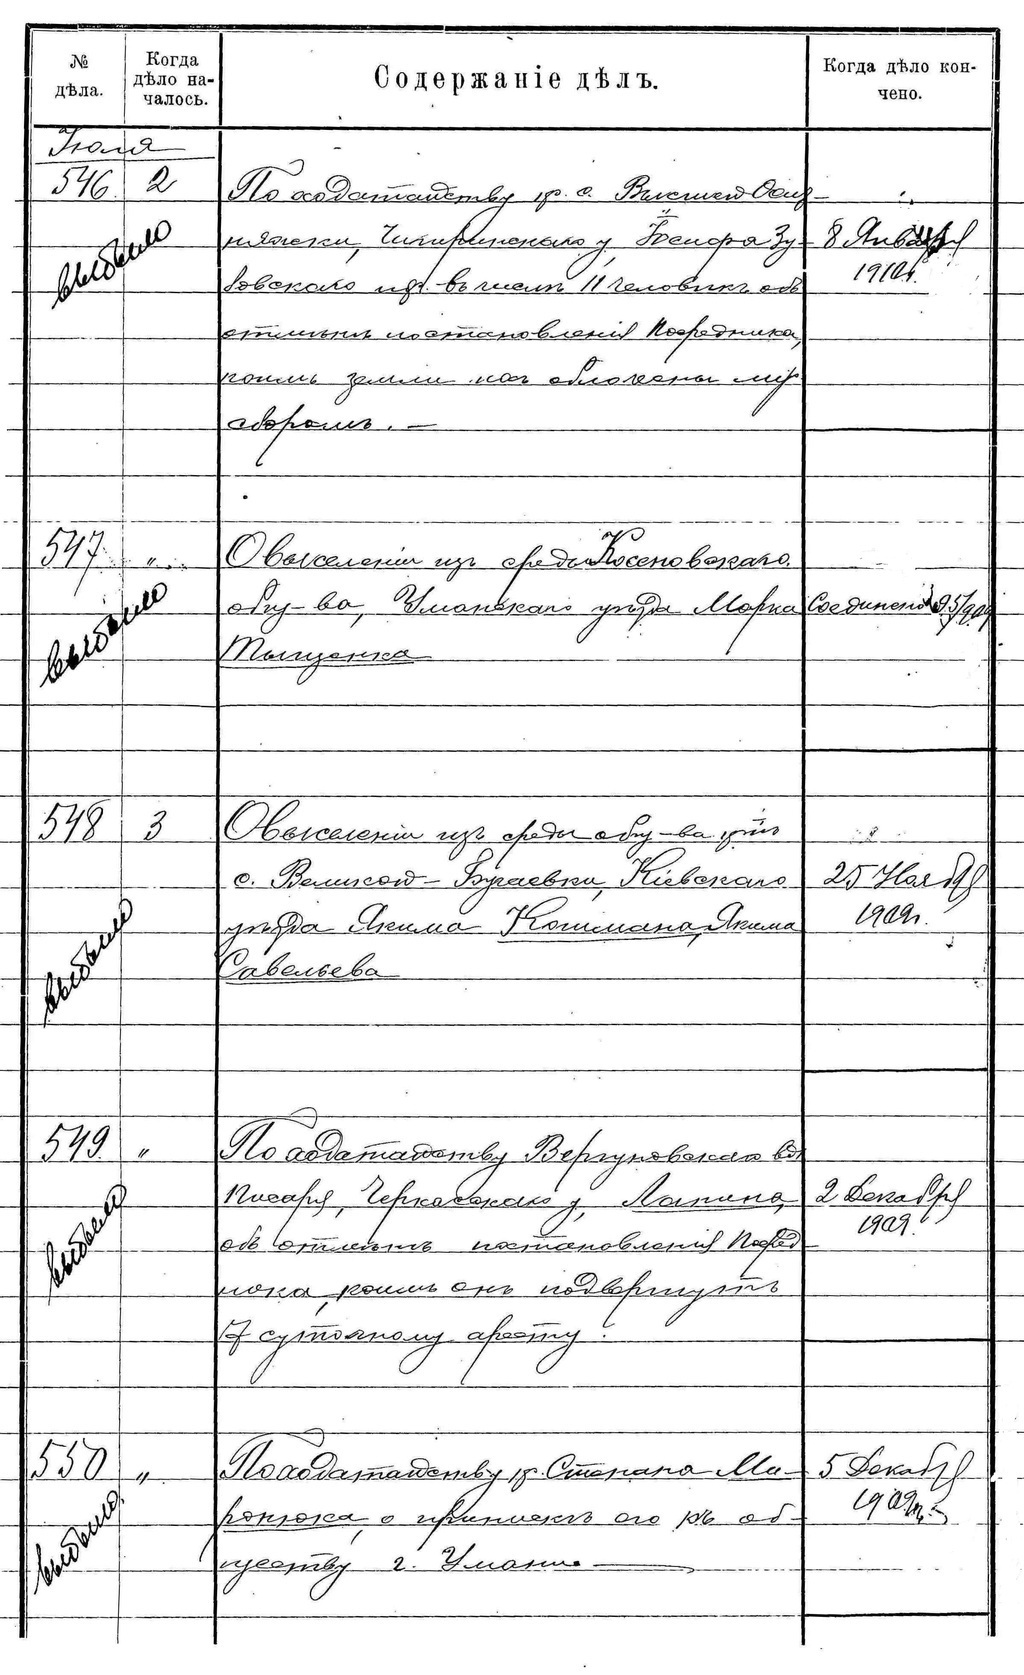 № дѣла.
Когда дѣло началось.
Содержаніе дѣлъ.
Когда дѣло кончено.
Іюля
546 2 По ходатайству кр. с.
Чигиринскаго у, Іосифа Зу- 8 Января
бовскаго и др. въ числѣ 11 человѣкъ объ 1910 г.
отмѣнѣ постановленія Посредника,
коимъ земли ихъ обложены мір
сборомъ. —
выбыло
547 " О выселеніи изъ среды Косеновскаго
общ-ва, Уманскаго уѣзда Марка Соединено
Тыщенка
выбыло
548 3 О выселеніи изъ среды общ-ва кр-нъ
с. Великой-Бугаевки, Кіевскаго 25 Ноября
уѣзда Якима Кошмана, Якима 1909 г.
Савельева
выбыло
549. " По ходатайству Вергуновскаго вол
Писаря, Черкасскаго у, Лапина, 2 Декабря
объ отмѣнѣ постановленія Посред- 1909.
ника, коимъ онъ подвергнутъ
7 суточному аресту.
выбыло
550 " По ходатайству кр. Степана Ми- 5 Декабря
ронюка, о припискѣ его къ об- 1909 г.
ществу г. Умани —
выбыло